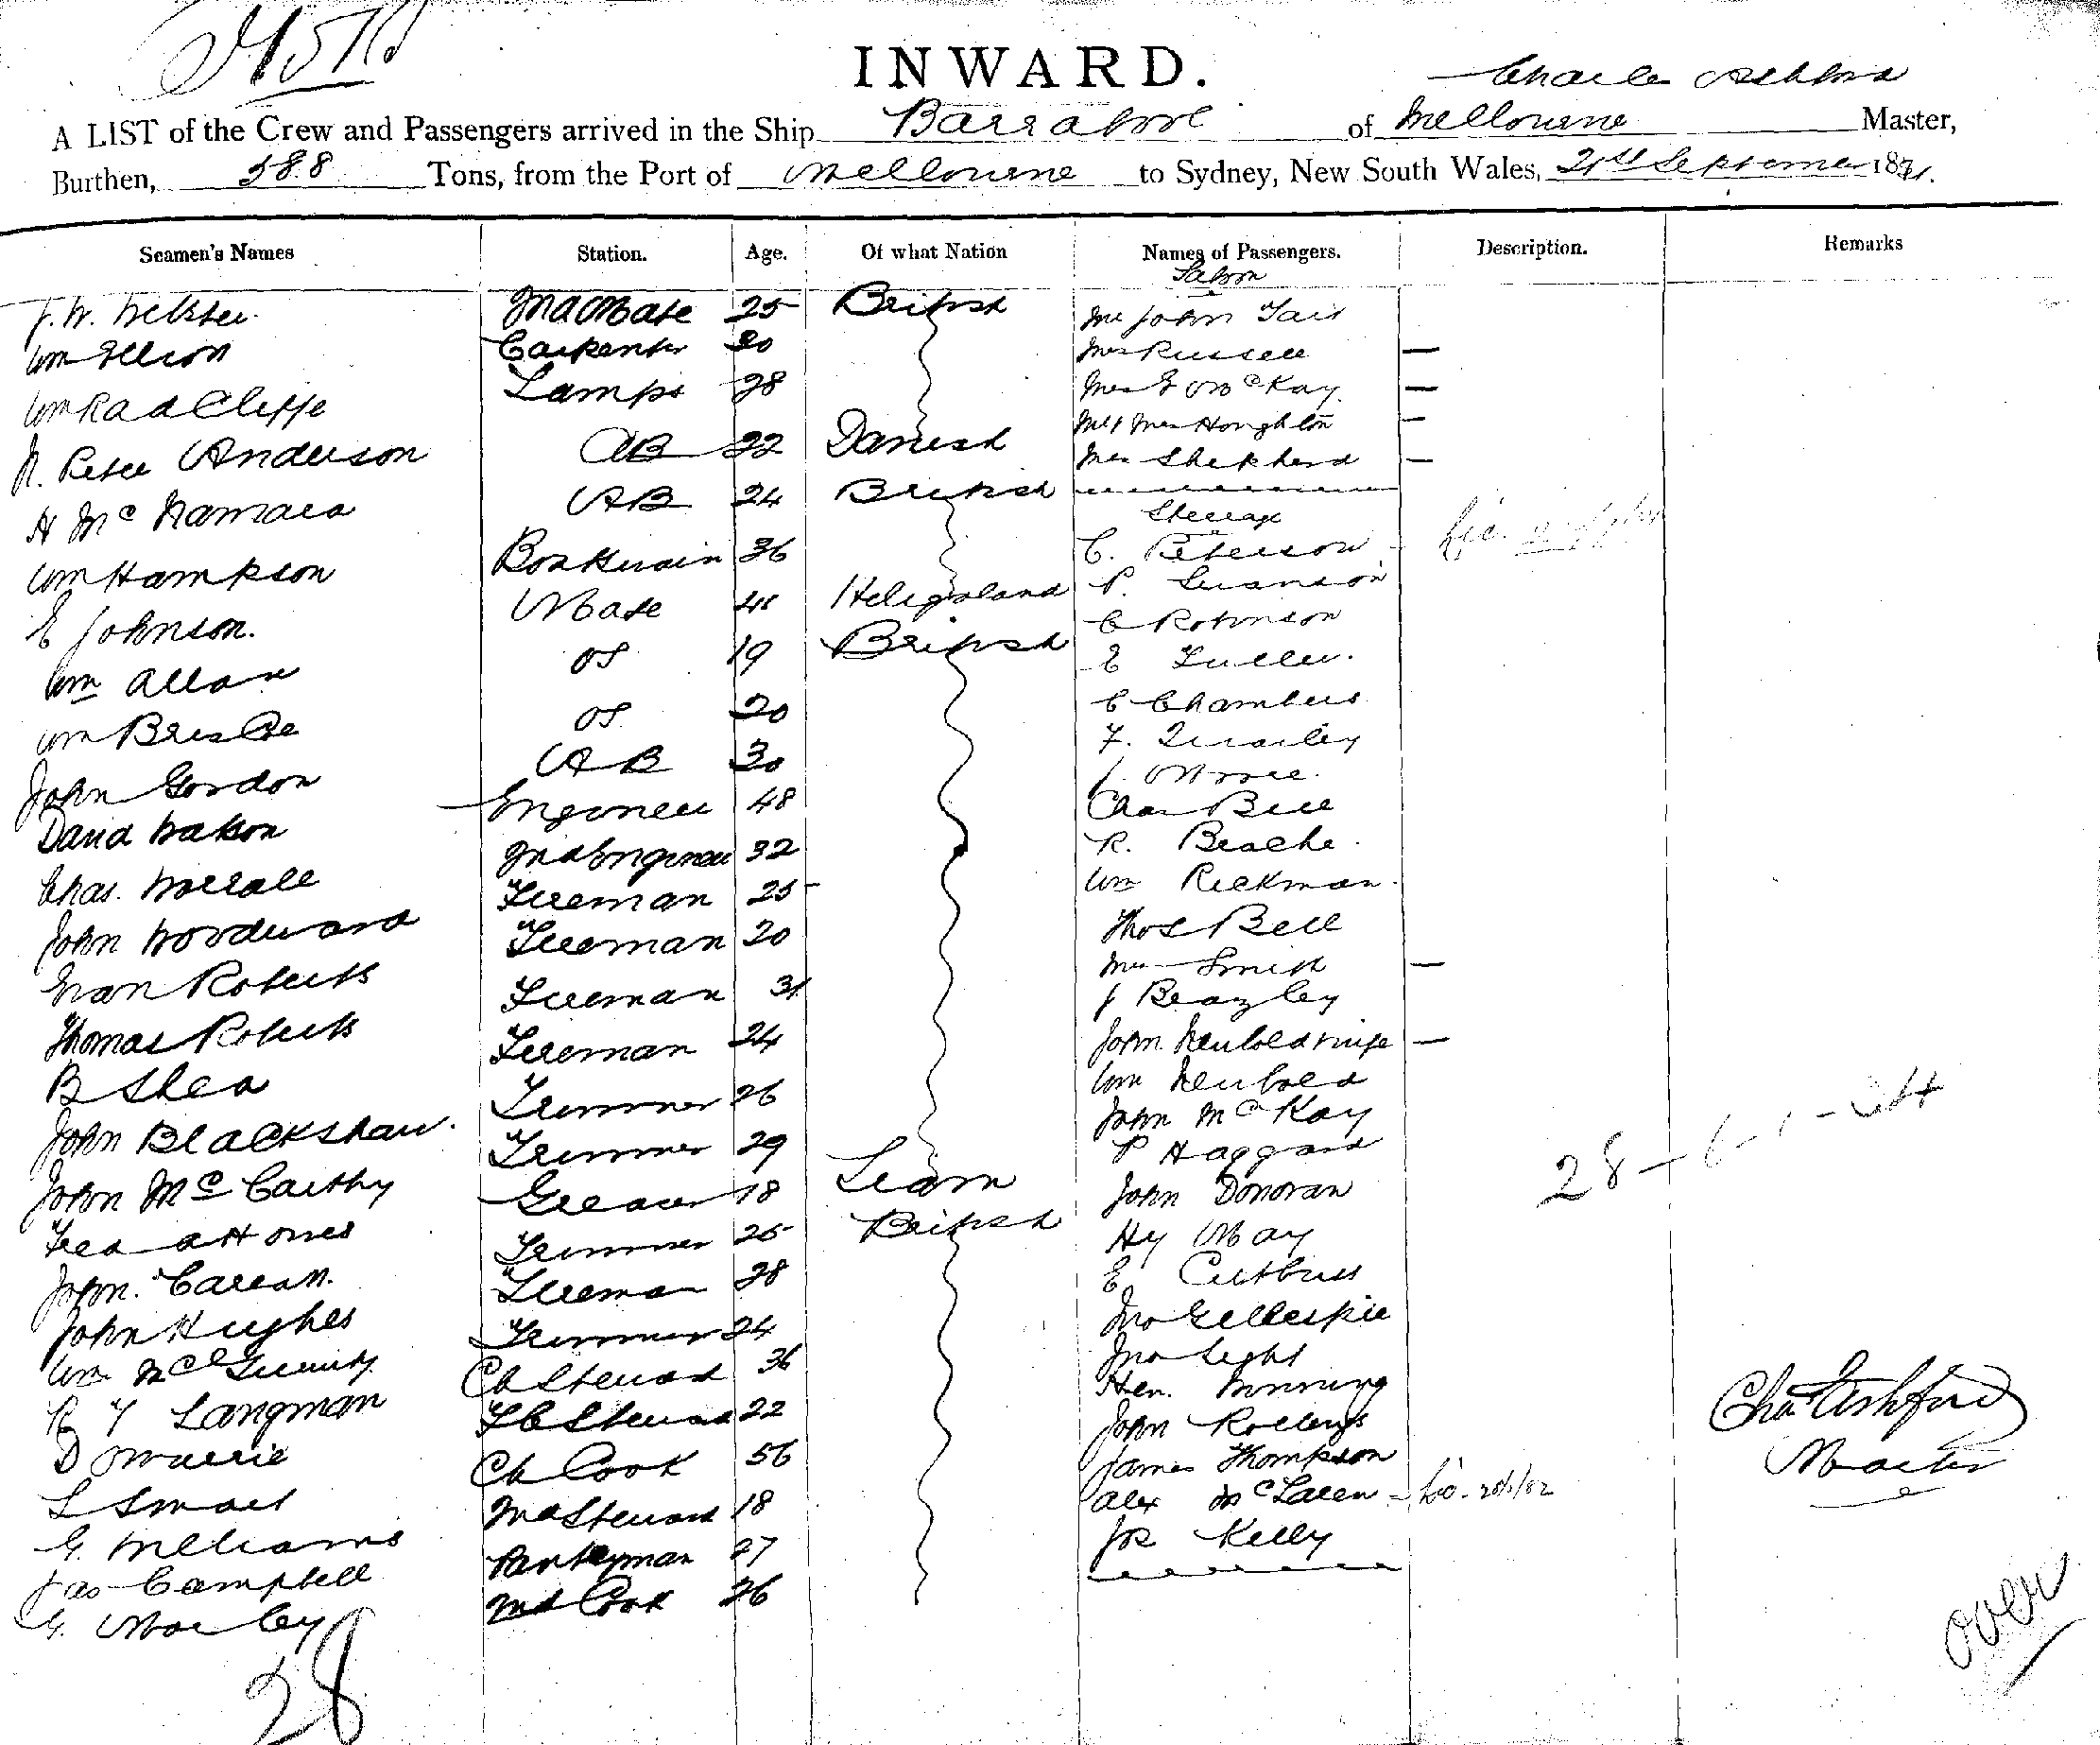 INWARD.
Charles Ashford
A LIST of the Crew and Passengers arrived in the Ship Barrabool of Melbourne Master,
Burthen, 588 Tons, from the Port of Melbourne to Sydney, New South Wales, 21st September 1871.
Seamen's Names Station. Age. Of what Nation Names of Passengers. Description. Remarks
Saloon
J. W. Webster 2nd Mate 25 British Mr John Tait
Wm Ellison Carpenter 30 Mrs Russell —
Wm Radcliffe Lamps 28 Mrs McKay —
Mr & Mrs Houghton —
N. Peter Anderson AB 22 Danish Mrs Shepherd —
H McNamara AB 24 British
Steerage
Wm Hampson Boatswain 36 C. Peterson
E Johnson. Mate 41 Heligoland P. Swanson
C Robinson
Wm Allan OS 19 British E Fuller.
Wm Briscoe OS 20 C Chambers
John Gordon AB 30 F. Quarley
J. Moore.
David Watson Engineer 48 Chas Bell
Chas. Worrall 2nd Engineer 32 R. Beache.
John Woodward Fireman 25 Wm Rickman.
Evan Roberts Fireman 20 Thos Bell
Mrs Smith —
Thomas Roberts Fireman 31 J Beazley
B Shea Fireman 24 John Newbold & wife —
Wm Newbold
John Blackshaw. Trimmer 26 John McKay
John McCarthy Trimmer 29 P Haggard
Fred Homes Greaser 18 Siam John Donovan
28-6-1-34
John. Carson. Trimmer 25 British Hy May
John Hughes Fireman 28 E Cutbush
Wm Trimmer 24 Jno Gillespie
R T Langman Ch Steward 36 Jno Light
Hen.
D Murrie F C Steward 22 John Rollings
L Smart Ch Cook 56 James Thompson
G. Williams 2nd Steward 18 Alex McLaren
Jas Campbell Pantryman 27 Jos Kelly
G. Morley 2nd Cook 26
Chas Ashford
Master
over
28